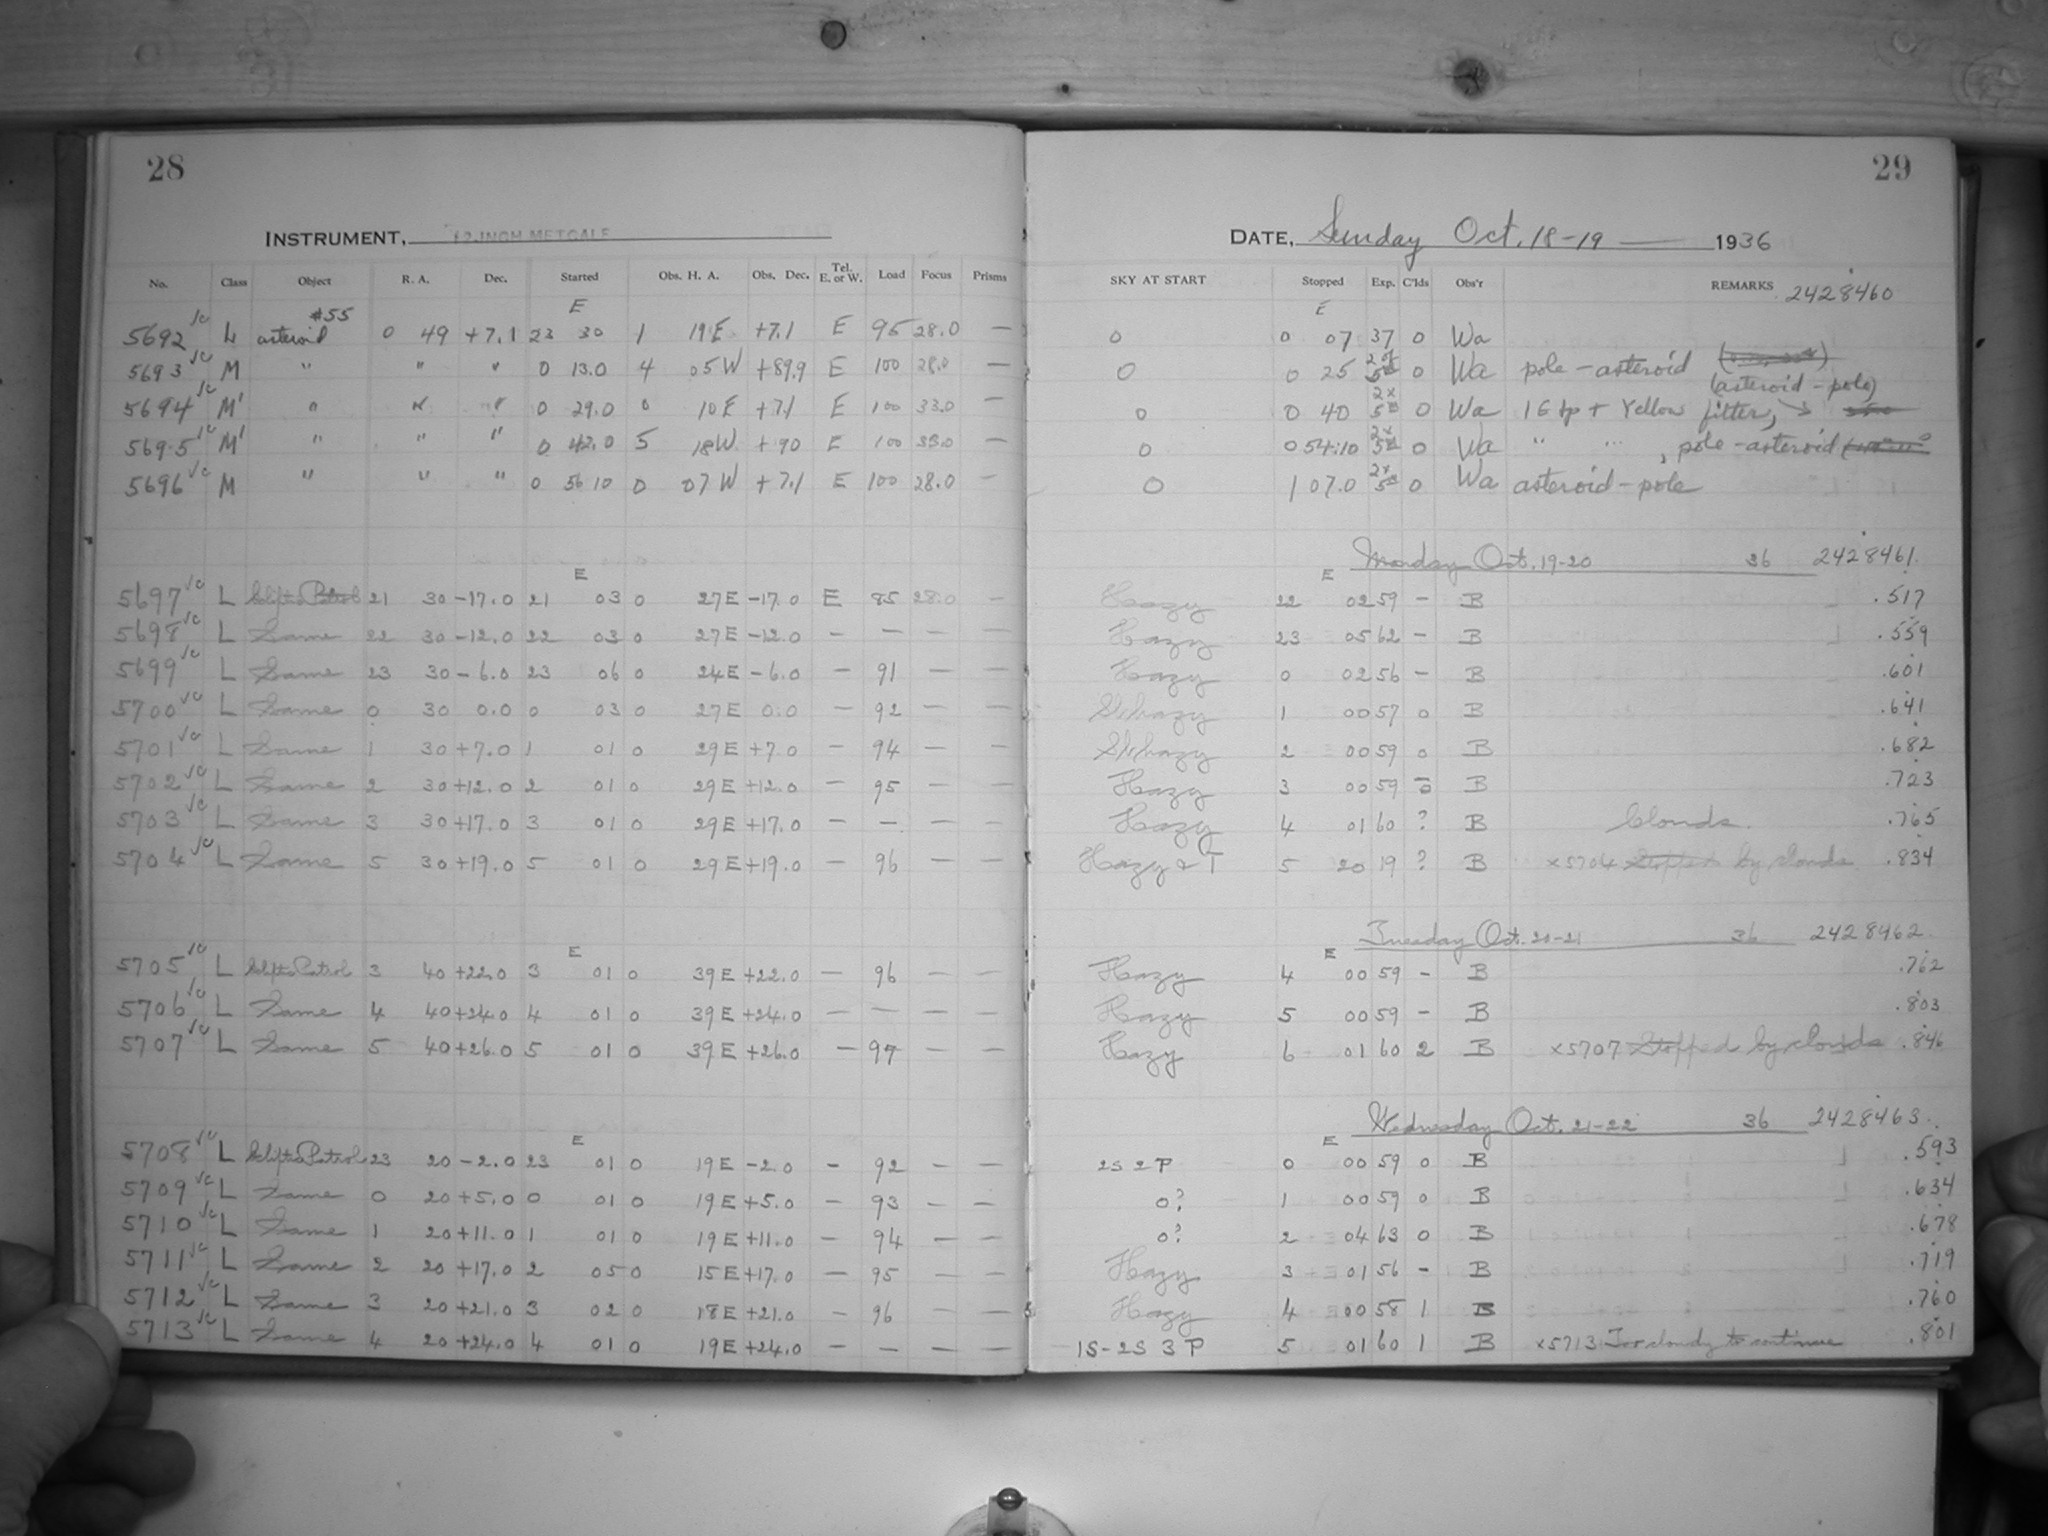 28
INSTRUMENT, 12-INCH METCALF
No. Class Object R. A. Dec. Started Obs. H. A. Obs. Dec. Tel. E. or W. Load Focus Prisms
E
#55
5692 L asteroid 0 49 +7.1 23 30 1 19 E +7.1 E 95 28.0 —
5693 M " " " 0 13.0 4 05 W +89.9 E 100 28.0 —
5694 M' " " " 0 29.0 0 10 E +7.1 E 100 33.0 —
5695 M' " " " 0 42.0 5 18 W +90 E 100 33.0 —
5696 M " " " 0 56 10 0 07 W +7.1 E 100 28.0 —
E
5697 L Patrol 21 30 -17.0 21 03 0 27 E -17.0 E 85 28.0 —
5698 L Same 22 30 -12.0 22 03 0 27 E -12.0 — — — —
5699 L Same 23 30 -6.0 23 06 0 24 E -6.0 — 91 — —
5700 L Same 0 30 0.0 0 03 0 27 E 0.0 — 92 — —
5701 L Same 1 30 +7.0 1 01 0 29 E +7.0 — 94 — —
5702 L Same 2 30 +12.0 2 01 0 29 E +12.0 — 95 — —
5703 L Same 3 30 +17.0 3 01 0 29 E +17.0 — — — —
5704 L Same 5 30 +19.0 5 01 0 29 E +19.0 — 96 — —
E
5705 L Patrol 3 40 +22.0 3 01 0 39 E +22.0 — 96 — —
5706 L Same 4 40 +24.0 4 01 0 39 E +24.0 — — — —
5707 L Same 5 40 +26.0 5 01 0 39 E +26.0 — 97 — —
E
5708 L Patrol 23 20 -2.0 23 01 0 19 E -2.0 — 92 — —
5709 L Same 0 20 +5.0 0 01 0 19 E +5.0 — 93 — —
5710 L Same 1 20 +11.0 1 01 0 19 E +11.0 — 94 — —
5711 L Same 2 20 +17.0 2 05 0 15 E +17.0 — 95 — —
5712 L Same 3 20 +21.0 3 02 0 18 E +21.0 — 96 — —
5713 L Same 4 20 +24.0 4 01 0 19 E +24.0 — — — —
29
DATE, Sunday Oct. 18-19 1936
SKY AT START Stopped Exp. C'lds Obs'r REMARKS 2428460
E
0 0 07 37 0 Wa
0 0 25 0 Wa pole - asteroid
(asteroid - pole)
0 0 40 2x 0 Wa 16 tp + Yellow filter,
0 0 54:10 2x 0 Wa " " , pole - asteroid
0 1 07.0 2x 0 Wa asteroid - pole
Monday Oct. 19-20 36 2428461
E
Hazy 22 02 59 - B .517
Hazy 23 05 62 - B .559
Hazy 0 02 56 - B .601
Sl. hazy 1 00 57 0 B .641
Sl. hazy 2 00 59 0 B .682
Hazy 3 00 59 B .723
Hazy 4 01 60 ? B Clouds. .765
Hazy + T 5 20 19 ? B x5704 Stopped by clouds .834
Tuesday Oct. 20-21 36 2428462
E
Hazy 4 00 59 - B .762
Hazy 5 00 59 - B .803
Hazy 6 01 60 2 B x5707 Stopped by clouds .846
Wednesday Oct. 21-22 36 2428463
E
2S 2P 0 00 59 0 B .593
0? 1 00 59 0 B .634
0? 2 04 63 0 B .678
Hazy 3 01 56 - B .719
Hazy 4 00 58 1 B .760
1S-2S 3P 5 01 60 1 B x5713 Too cloudy to continue .801